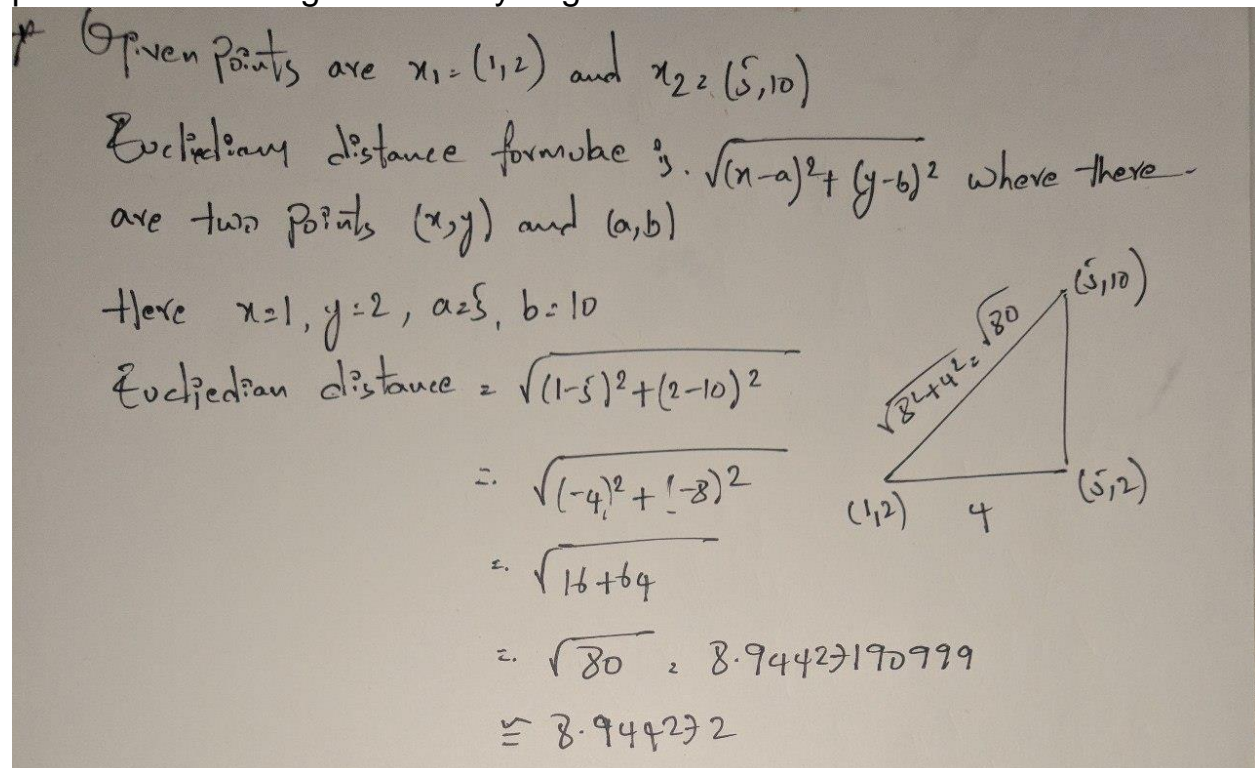 * Given points are x₁ = (1,2) and x₂ = (5,10)
Euclidiany distance formulae is. √(x-a)²+(y-b)² where there
are two points (x,y) and (a,b)
Here x=1, y=2, a=5, b=10
Eucliedian distance = √(1-5)²+(2-10)²
= √(-4)²+(-8)²
= √16+64
= √80 = 8.94427190999
≅ 8.944272
(5,10)
√8²+4² = √80
(1,2)
4
(5,2)